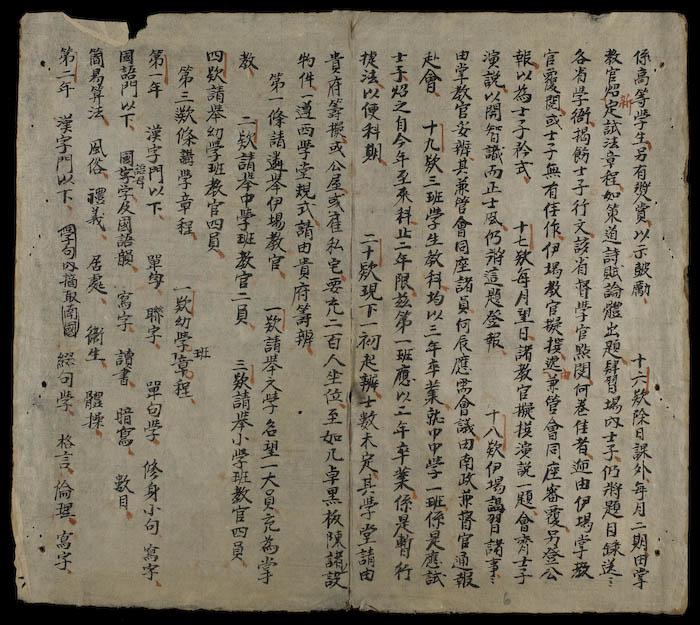 係高等學生另有獎賞以示鼓勵 十六欵除日課外每月二期由掌
教官炤定新試法章程如策道詩賦論體出題肄習場內士子仍將題目錄送〻
各省學銜揭飭士子行文該省督學官點閱何卷佳者迎由伊場掌教
官覆閱或士子無有任作伊場教官擬撰迎由兼管會同座審覆另登公
報以為士子矜式 十七欵每月望日諸教官擬撰演説一題會齊士子
演説以開智識而正士風仍將這題登報 十八欵伊場講習諸事〻
由掌教官妥辨其兼管會同座諸員何辰應需會議由南政兼督官通報
赴會 十九欵三班學生教科均以三年卒業就中中學一班係是應試
士子炤之自今年至來科止二年限茲第一班應以二年卒業係是暫行
捷法以便科期 二十欵現下一初起辨士數未定其學堂請由
貴府籌撥或公屋或雇私宅要充二百人坐位至如几卓黑板陳諸設
物件一遵西學堂規式請由貴府籌辨
第一條請遴舉伊場教官 一欵請舉文學名望一大員充為掌
教 二欵請舉中學班教官二員 三欵請舉小學班教官四員
四欵請舉幼學班教官四員
第三欵條講學章程 一欵幼學班章程
第一年 漢字門以下 單字 聯字 單句學 修身小句 寫字
國語門以下 國字學及國語韻 寫字 讀書 暗寫 數目
簡易算法 風俗 禮義 居處 衛生 體操
第二年 漢字門以下 四字句內摘取南國 綴句學 格言 倫理 寫字